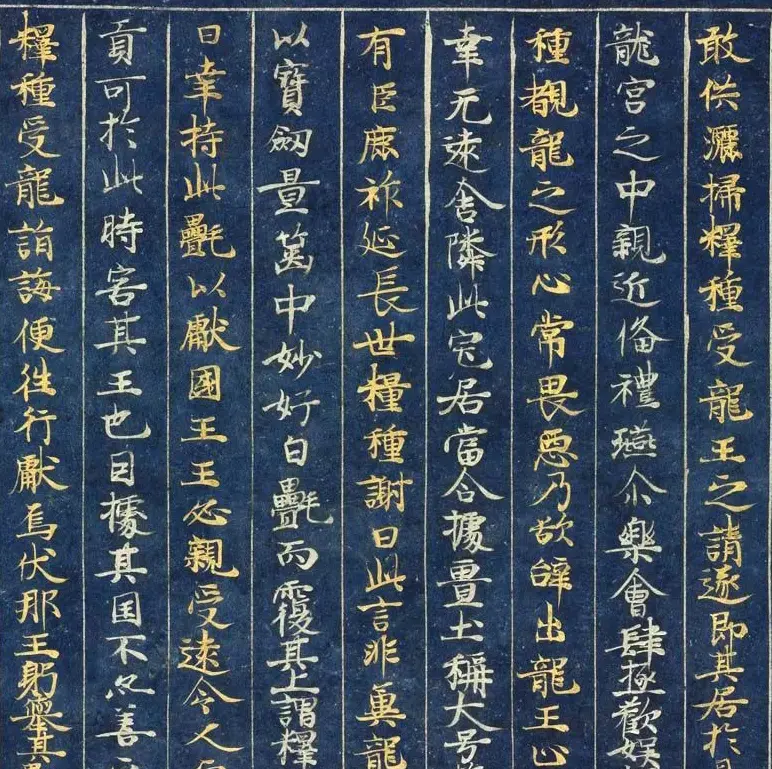 敢供灑掃釋種受龍王之請遂即其居於
龍宮之中親近俻禮䜩尒樂會肆極歡娱
種覩龍之形心常畏惡乃欲辝出龍王止
幸无遠舍隣此宅居當令據疆土稱大号
有臣庶祚延長世釋種謝曰此言非冀龍
以寶劒置篋中妙好白㲲而覆其上謂釋
曰幸持此㲲以獻國王王必親受遠令人
貢可於此時害其王也因據其国不亦善
釋種受龍誨便徃行獻烏仗那王躬舉其